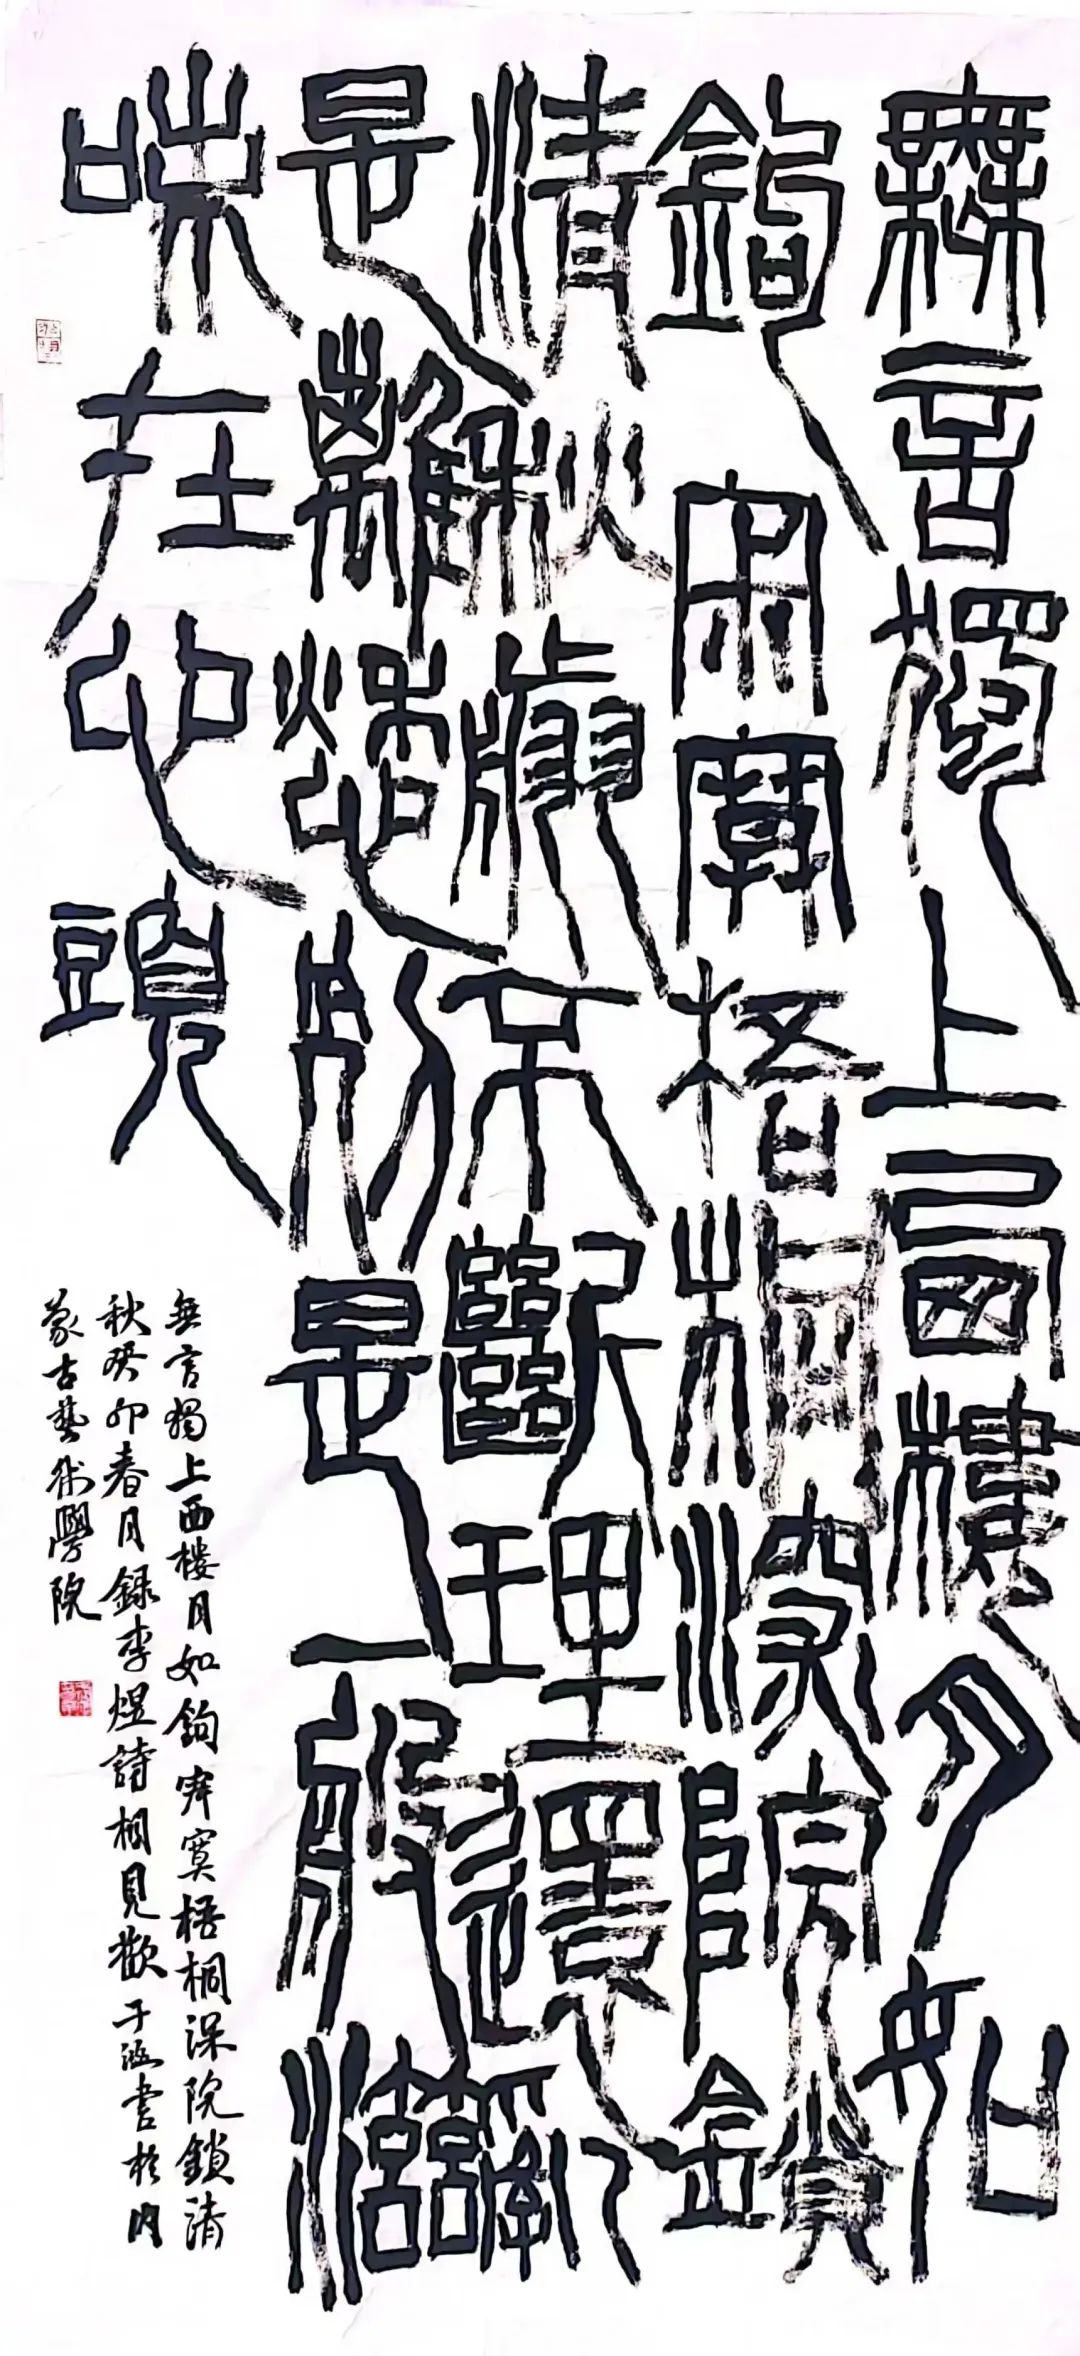 無言獨上西樓月如
鉤寂寞梧桐深院鎖
清秋剪不斷理還亂
是離愁別是一般滋
味在心頭
無言獨上西楼月如鉤寂寞梧桐深院鎖清
秋癸卯春月録李煜詩相見歡子涵書於内
蒙古藝術學院